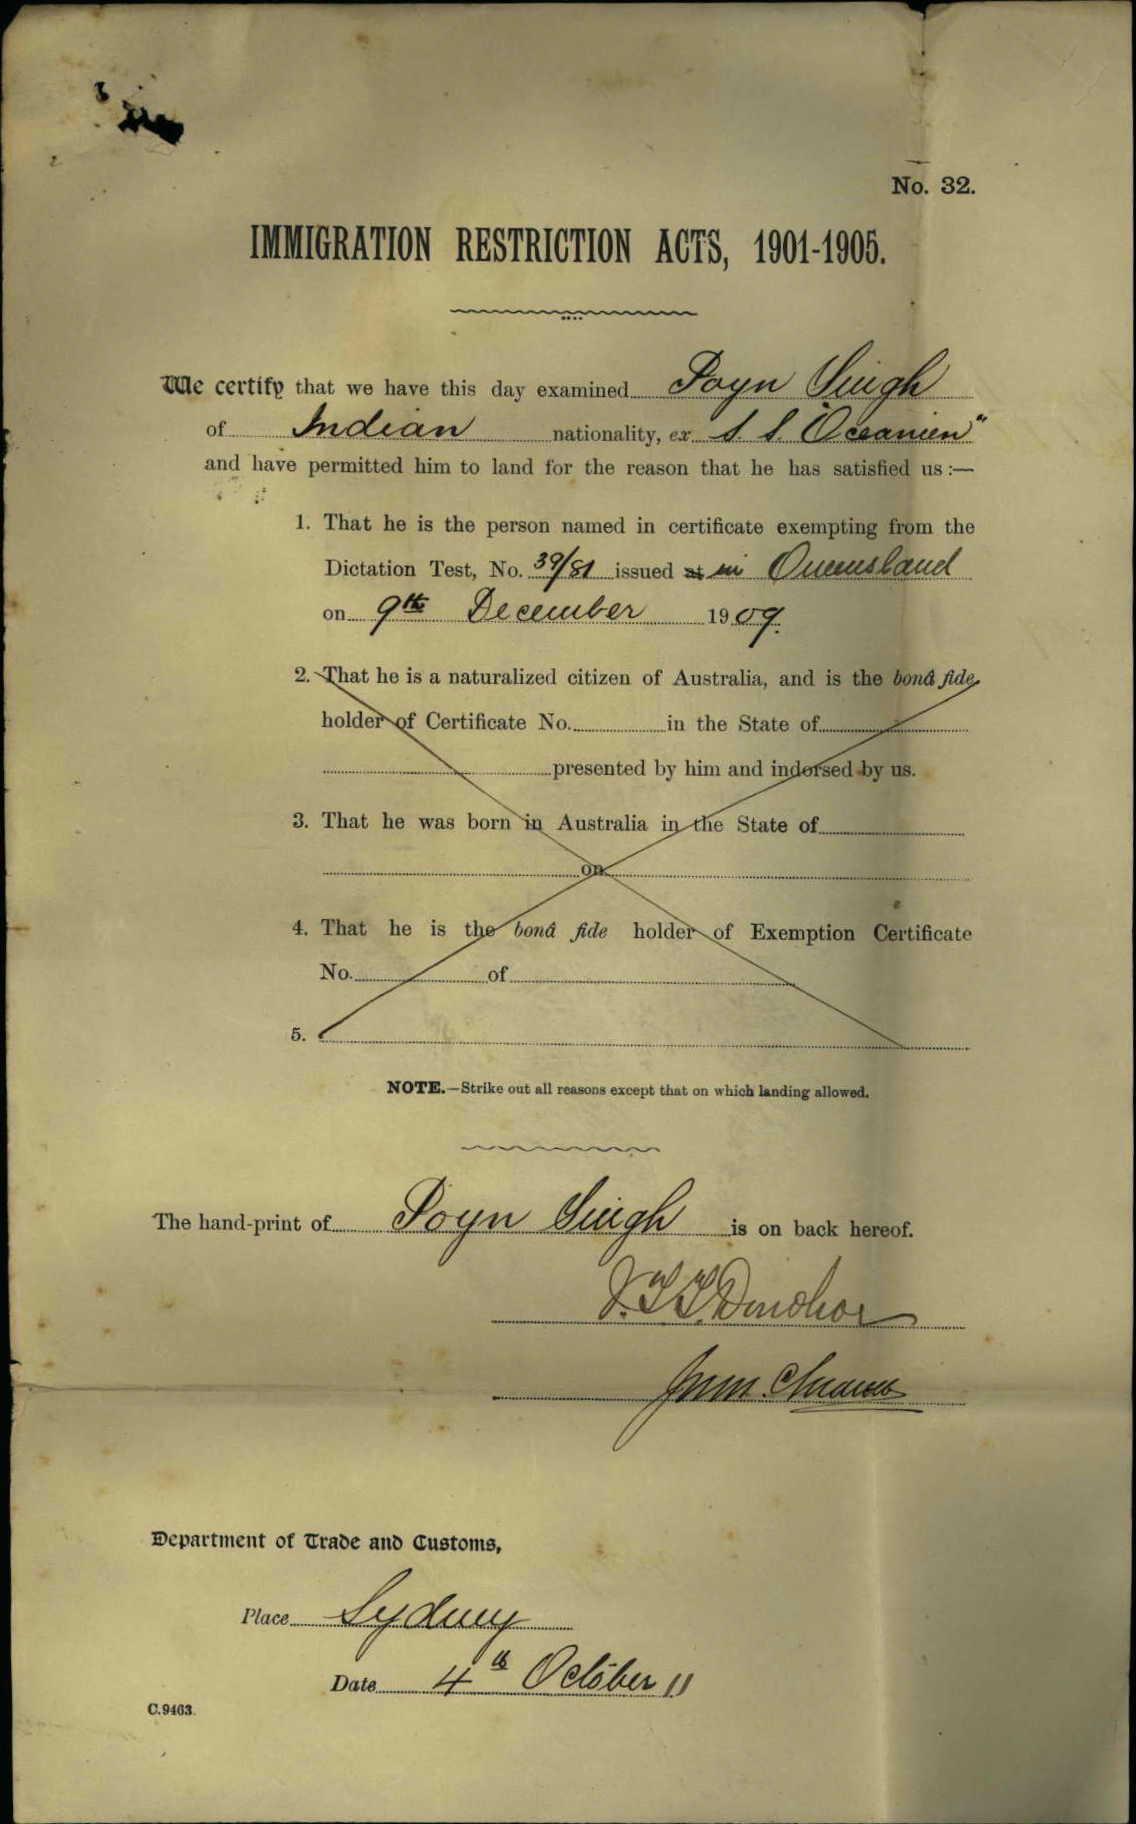 No. 32.
IMMIGRATION RESTRICTION ACTS, 1901-1905.
We certify that we have this day examined Poyn Singh
of Indian nationality, ex S.S. "Oceanien"
and have permitted him to land for the reason that he has satisfied us :—
1. That he is the person named in certificate exempting from the
Dictation Test, No. 39/81 issued at in Queensland
on 9th December 1909.
2. That he is a naturalized citizen of Australia, and is the bonâ fide
holder of Certificate No. in the State of
presented by him and indorsed by us.
3. That he was born in Australia in the State of
on
4. That he is the bonâ fide holder of Exemption Certificate
No. of
5.
NOTE.—Strike out all reasons except that on which landing allowed.
The hand-print of Poyn Singh is on back hereof.
J.T.T. Donohoe
Department of Trade and Customs,
Place Sydney
Date 4th October 11
C.9463.